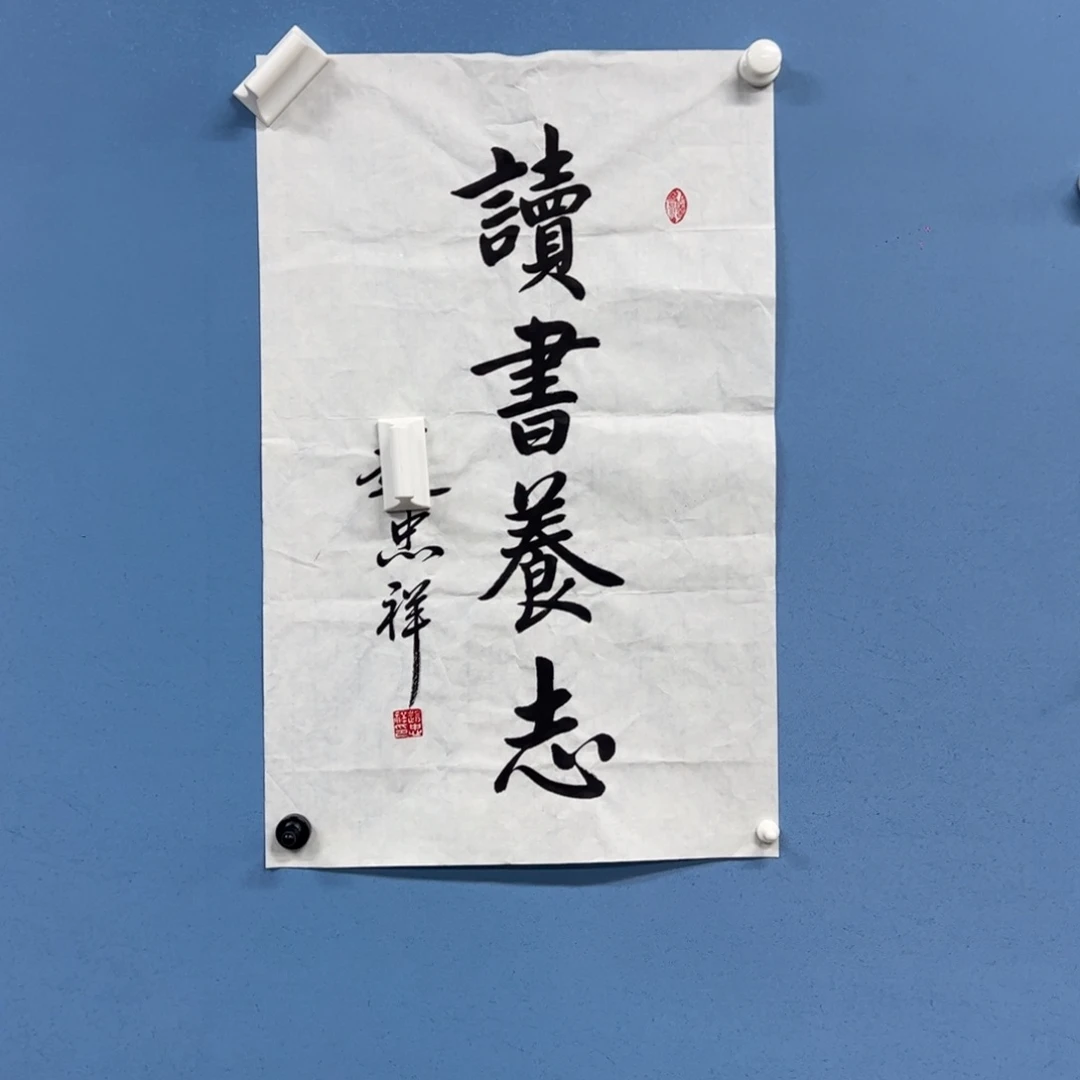 讀書養志
忠祥